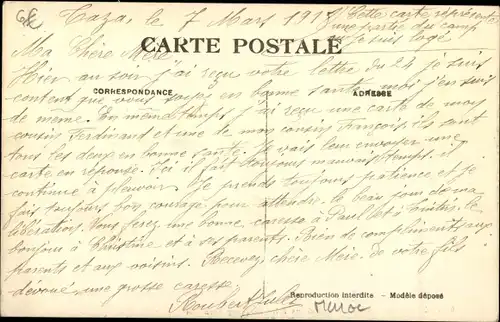 6€
Taza, le 7 Mars 191
Cette carte représente
une partie du camp
où je suis logé
CARTE POSTALE
Ma chère Mère
Hier au soir j'ai reçu votre lettre du 24 je suis
CORRESPONDANCE
ADRESSE
content que vous soyez en bonne santé moi j'en suis
de même. En même temps j'ai reçu une carte de mon
cousin Ferdinand et une de mon cousin François ils sont
tous les deux en bonne santé. Je vais leur envoyer une
carte en réponse. Ici il fait toujours mauvais temps il
continue à pleuvoir. Je prends toujours patience et je
fais toujours bon courage pour attendre le beau jour de ma
libération. Vous ferez une bonne caresse à Paul et à
bonjour à Christine et à ses parents. Bien de compliments aux
parents et aux voisins. Recevez chère Mère de votre fils
dévoué une grosse caresse
Reproduction interdite - Modèle déposé
Maroc